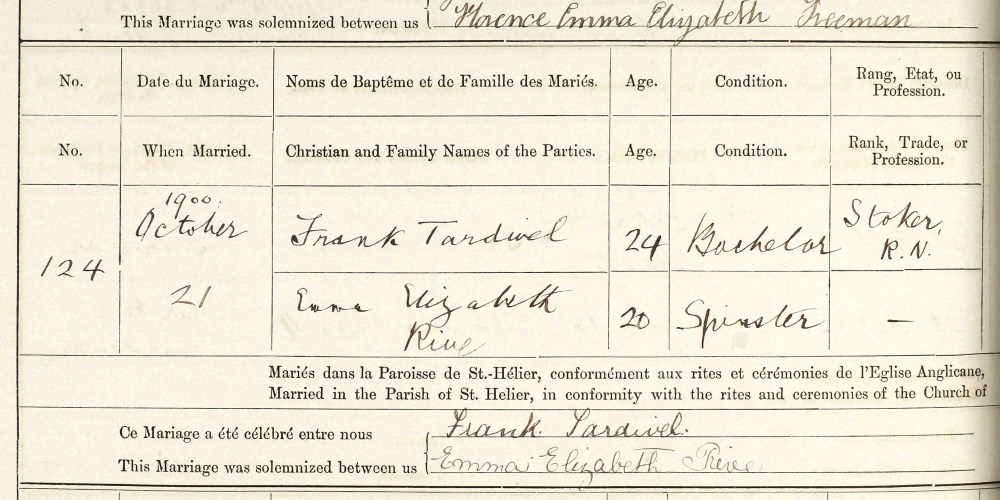 This Marriage was solemnized between us Florence Emma Elizabeth Freeman
No. Date du Mariage. Noms de Baptême et de Famille des Mariés. Age. Condition. Rang, Etat, ou Profession.
No. When Married. Christian and Family Names of the Parties. Age. Condition. Rank, Trade, or Profession.
124 1900. October 21
Frank Tardivel 24 Bachelor Stoker, R.N.
Emma Elizabeth Rive 20 Spinster —
Mariés dans la Paroisse de St.-Hélier, conformément aux rites et cérémonies de l'Eglise Anglicane,
Married in the Parish of St. Helier, in conformity with the rites and ceremonies of the Church of
Ce Mariage a été célébré entre nous Frank Tardivel.
This Marriage was solemnized between us Emma Elizabeth Rive